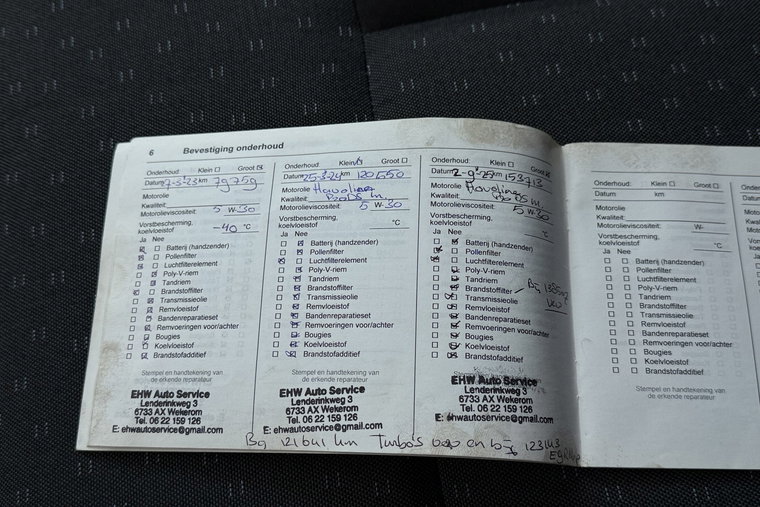 6 Bevestiging onderhoud
Onderhoud: Klein Groot
Datum 7-5-23 km 79759
Motorolie
Kwaliteit:
Motorolieviscositeit: 5 W-30
Vorstbescherming,
koelvloeistof -40 °C
Ja Nee
Batterij (handzender)
Pollenfilter
Luchtfilterelement
Poly-V-riem
Tandriem
Brandstoffilter
Transmissieolie
Remvloeistof
Bandenreparatieset
Remvoeringen voor/achter
Bougies
Koelvloeistof
Brandstofadditief
Stempel en handtekening van
de erkende reparateur
EHW Auto Service
Lenderinkweg 3
6733 AX Wekerom
Tel. 06 22 159 126
E: ehwautoservice@gmail.com
Onderhoud: Klein Groot
Datum 25-3-24 km 120550
Motorolie Havoline
Kwaliteit: ProDS m
Motorolieviscositeit: 5 W-30
Vorstbescherming,
koelvloeistof °C
Ja Nee
Batterij (handzender)
Pollenfilter
Luchtfilterelement
Poly-V-riem
Tandriem
Brandstoffilter
Transmissieolie
Remvloeistof
Bandenreparatieset
Remvoeringen voor/achter
Bougies
Koelvloeistof
Brandstofadditief
Stempel en handtekening van
de erkende reparateur
EHW Auto Service
Lenderinkweg 3
6733 AX Wekerom
Tel. 06 22 159 126
E: ehwautoservice@gmail.com
Onderhoud: Klein Groot
Datum 2-9-25 km 153713
Motorolie Havoline
Kwaliteit: ProDS m
Motorolieviscositeit: 5 W-30
Vorstbescherming,
koelvloeistof °C
Ja Nee
Batterij (handzender)
Pollenfilter
Luchtfilterelement
Poly-V-riem
Tandriem
Brandstoffilter
Transmissieolie
Remvloeistof
Bandenreparatieset
Remvoeringen voor/achter
Bougies
Koelvloeistof
Brandstofadditief
EHW Auto Service
Lenderinkweg 3
6733 AX Wekerom
Tel. 06 22 159 126
E: ehwautoservice@gmail.com
Bij 121641 km Turbo's en 123143
Onderhoud: Klein Groot
Datum km
Motorolie
Kwaliteit:
Motorolieviscositeit: W-
Vorstbescherming,
koelvloeistof °C
Ja Nee
Batterij (handzender)
Pollenfilter
Luchtfilterelement
Poly-V-riem
Tandriem
Brandstoffilter
Transmissieolie
Remvloeistof
Bandenreparatieset
Remvoeringen voor/achter
Bougies
Koelvloeistof
Brandstofadditief
Stempel en handtekening van
de erkende reparateur